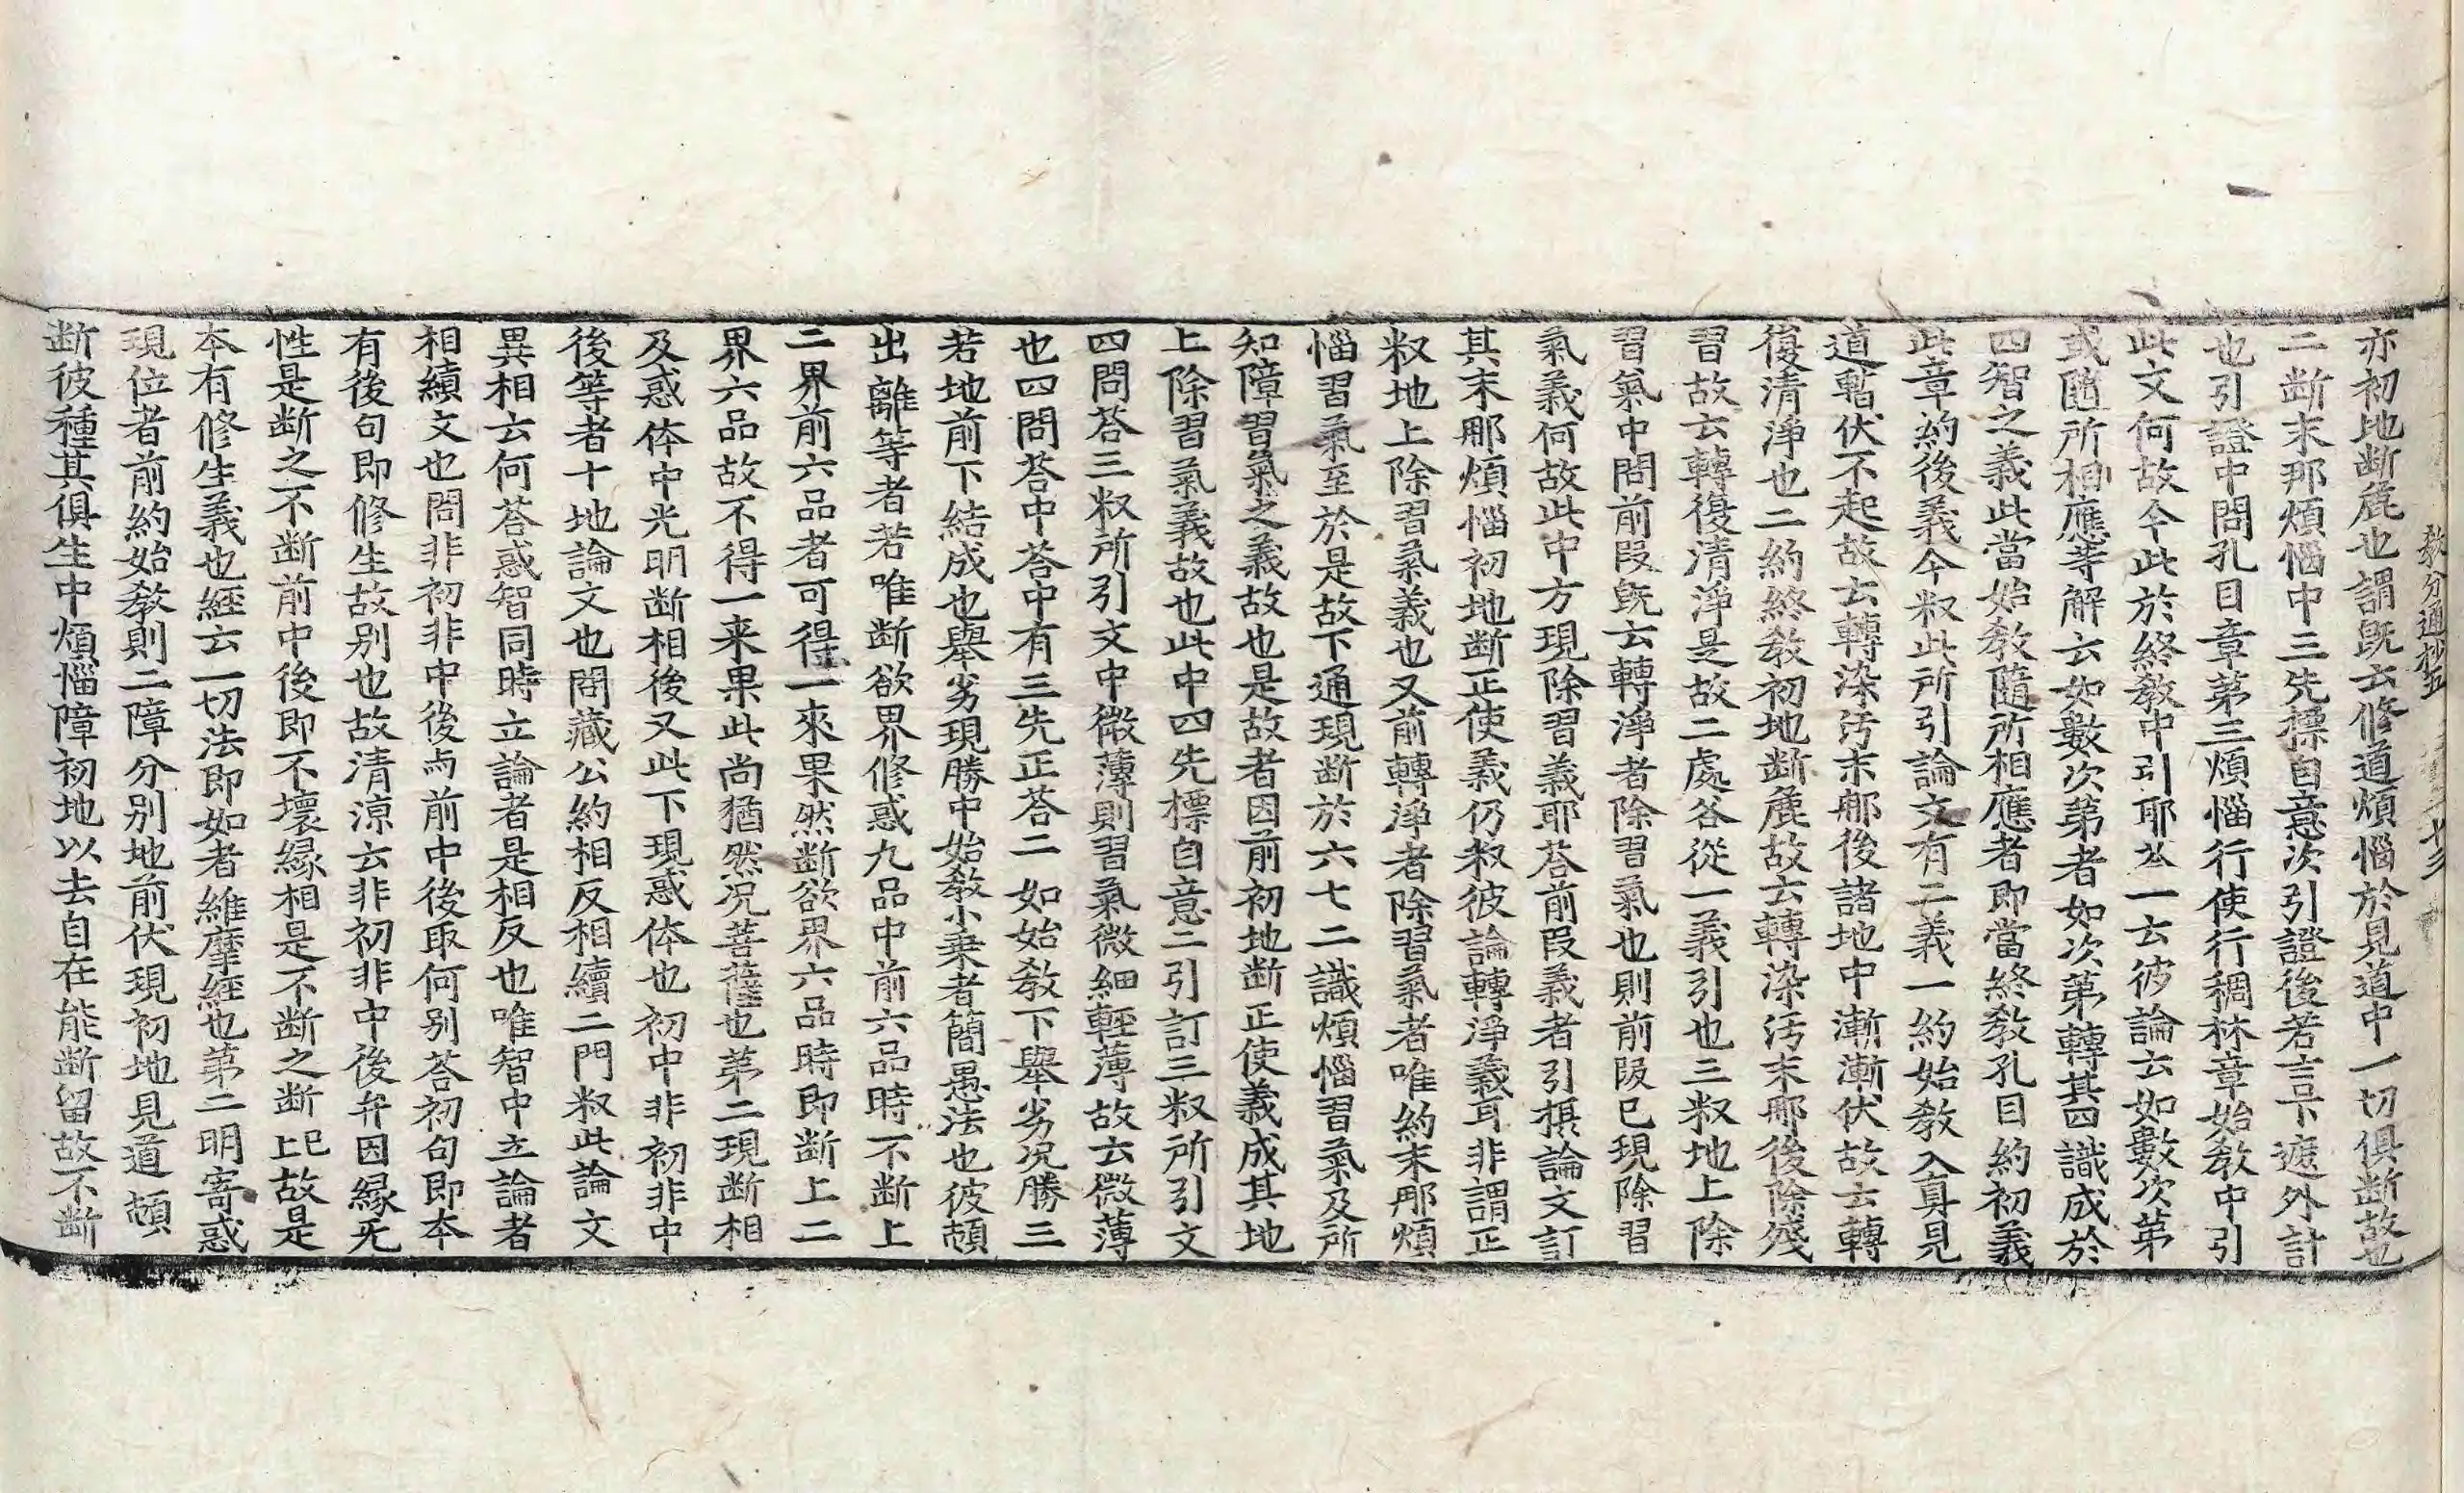 亦初地断麁也謂旣云修道煩惱於見道中一切俱断故也
二断末那煩惱中三先標自意次引證後若言下遮外計
也引證中問孔目章第三煩惱行使行稠林章始敎中引
此文何故今此於終敎中引耶荅一云彼論云如數次第
或隨所相應等解云如數次第者如次第轉其四識成於
四智之義此當始敎隨所相應者即當終敎孔目約初義
此章約後義今㪽此所引論文有二義一約始敎入真見
道暫伏不起故云轉染汚末那後諸地中漸漸伏故云轉
復清淨也二約終敎初地断麁故云轉染汚末那後除殘
習故云轉復清淨是故二處各從一義引也三㪽地上除
習氣中問前叚旣云轉淨者除習氣也則前叚已現除習
氣義何故此中方現除習義耶荅前叚義者引㨿論文訂
其末那煩惱初地断正使義仍㪽彼論轉淨義耳非謂正
㪽地上除習氣義也又前轉淨者除習氣者唯約末那煩
惱習氣至於是故下通現断於六七二識煩惱習氣及所
知障習氣之義故也是故者因前初地断正使義成其地
上除習氣義故也此中四先標自意二引訂三㪽所引文
四問荅三㪽所引文中微薄則習氣微細輕薄故云微薄
也四問荅中荅中有三先正荅二如始敎下擧劣况勝三
若地前下結成也擧劣現勝中始敎小乗者簡愚法也彼頓
出離等者若唯断欲界修惑九品中前六品時不断上
二界前六品者可得一來果然断欲界六品時即断上二
界六品故不得一来果此尚猶然况菩薩也第二現断相
及惑体中光明断相後又此下現惑体也初中非初非中
後等者十地論文也問藏公約相反相續二門㪽此論文
異相云何荅惑智同時立論者是相反也唯智中立論者
相續文也問非初非中後与前中後取何别荅初句即本
有後句即修生故别也故清涼云非初非中後弁因縁无
性是断之不断前中後即不壞縁相是不断之断上已故是
本有修生義也經云一切法即如者維摩經也第二明寄惑
現位者前約始敎則二障分别地前伏現初地見道頓
断彼種其俱生中煩惱障初地以去自在能断留故不断
敎分通抄五